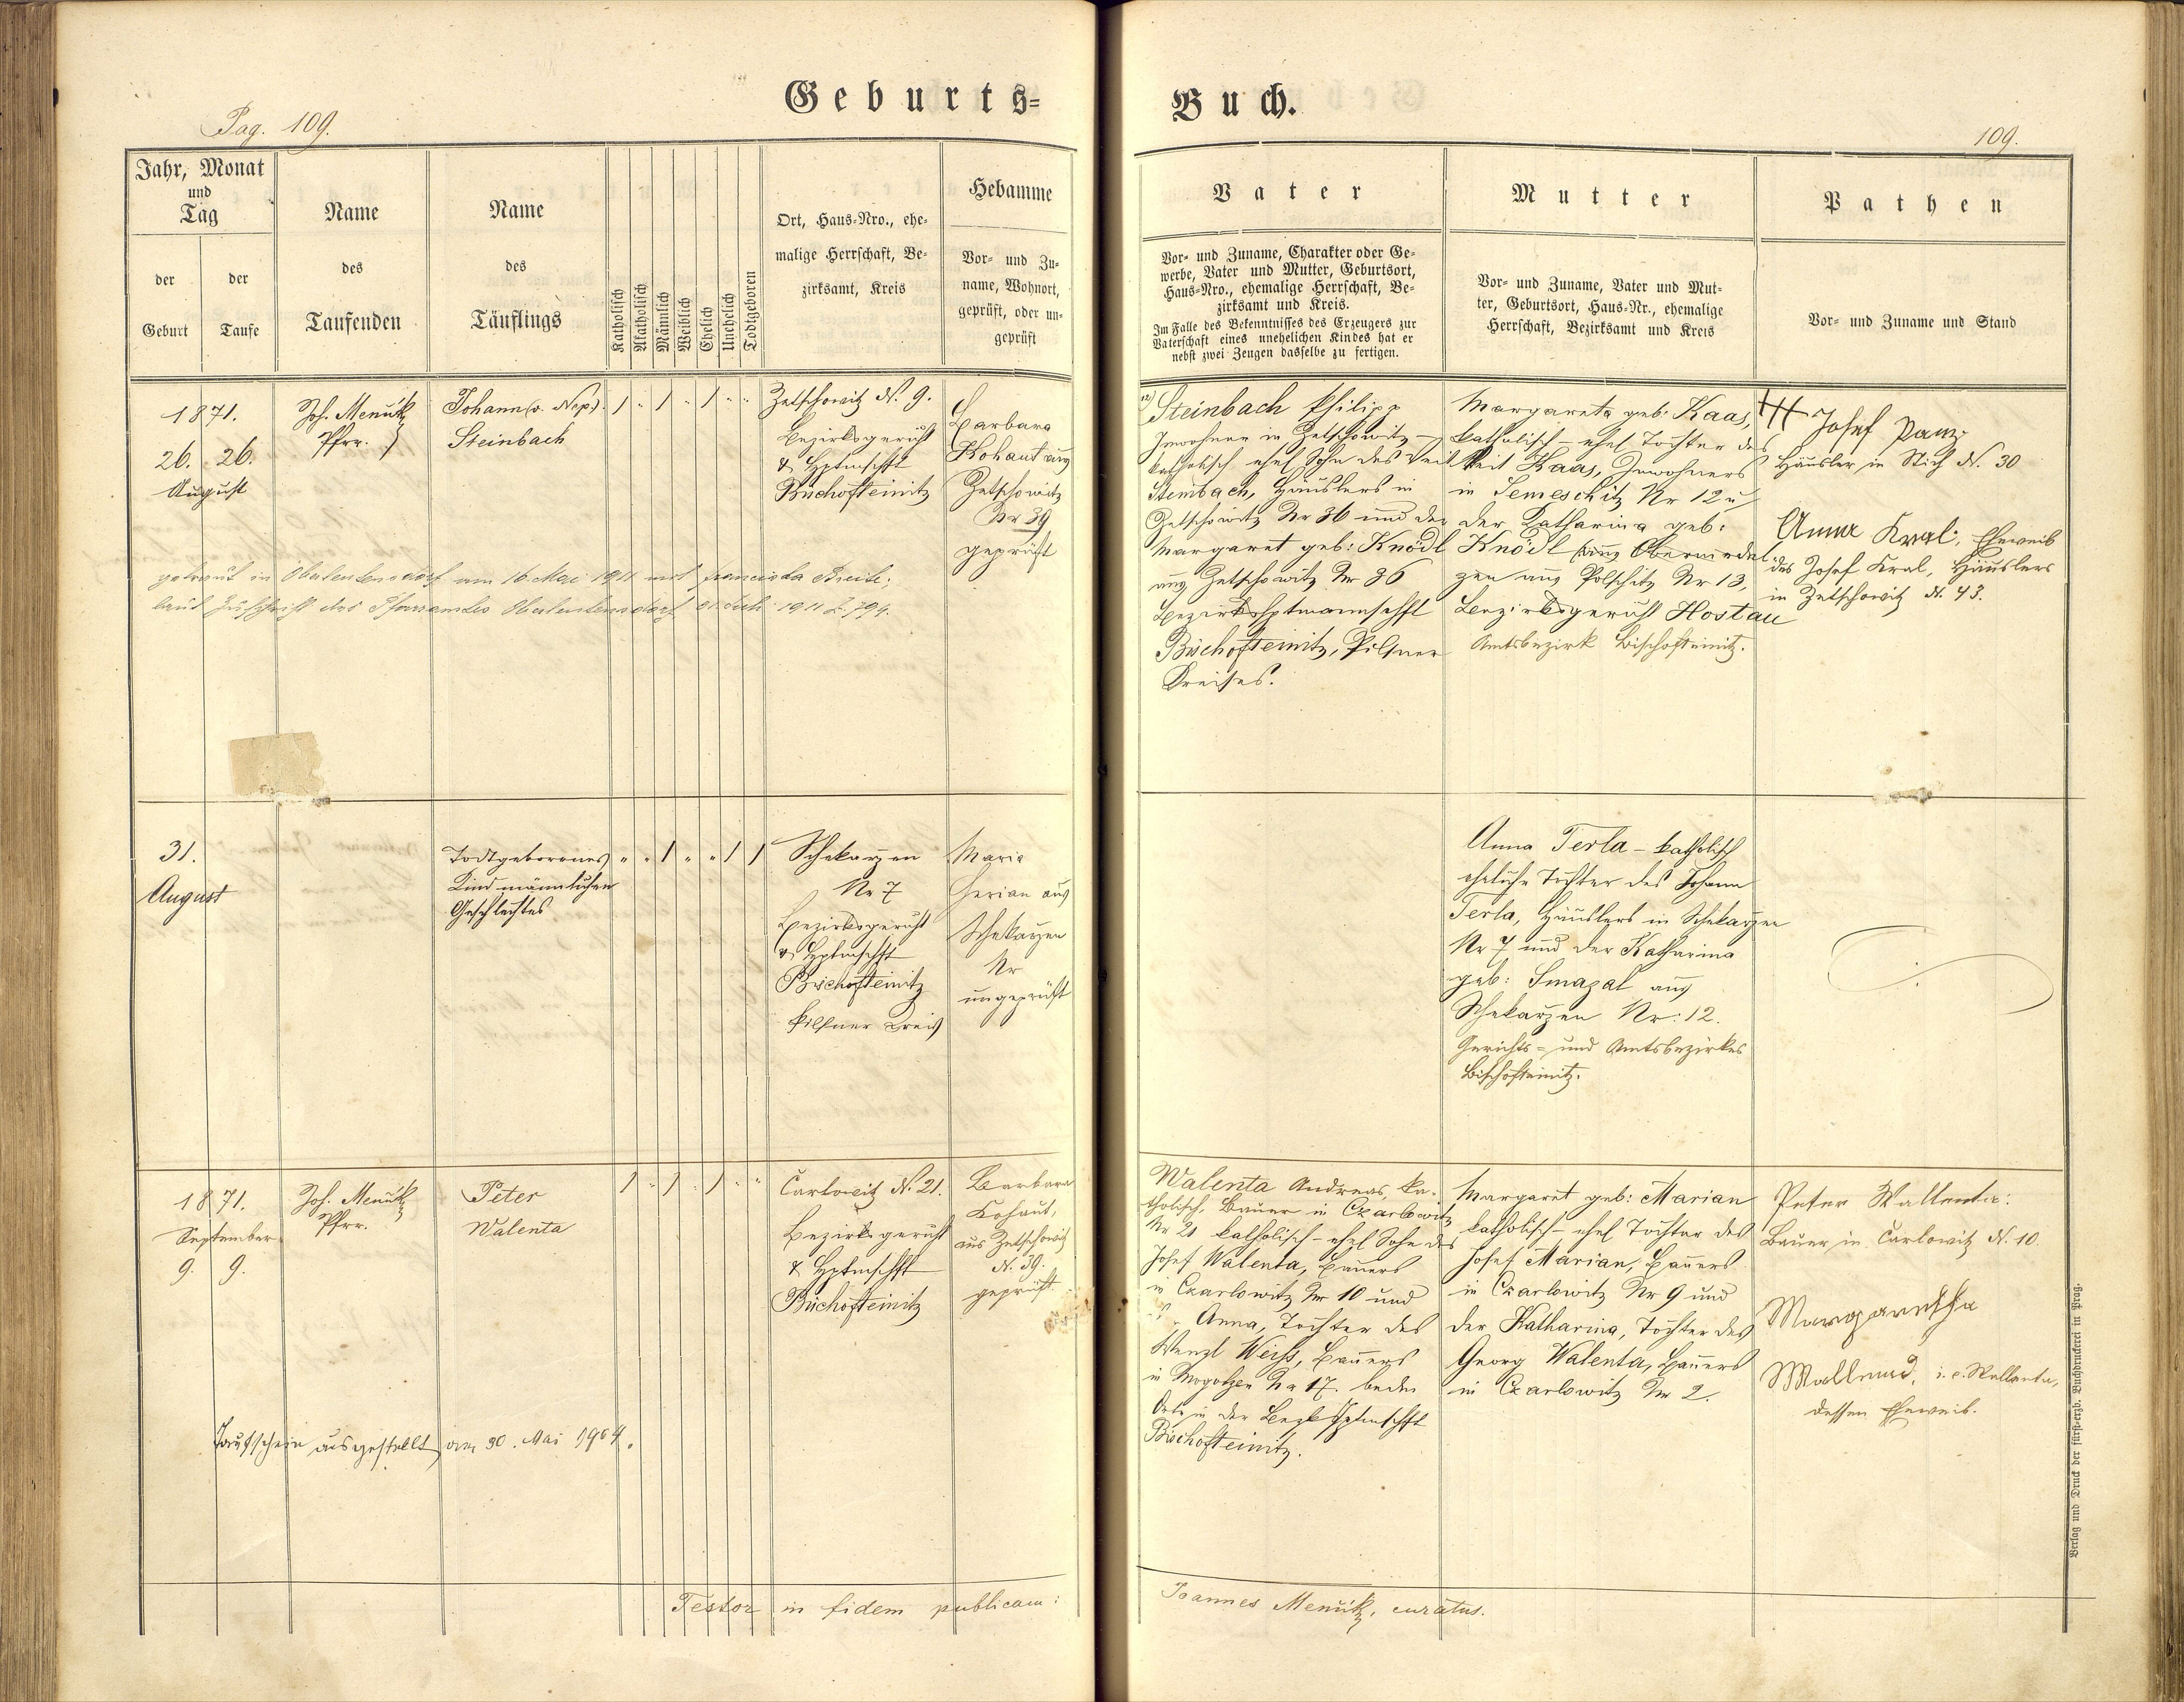 Geburts-
Buch.
Pag. 109.
109.
Jahr, Monat
und
Tag
der
Geburt
der
Taufe
Name
des
Taufenden
Name
des
Täuflings
Katholisch
Akatholisch
Männlich
Weiblich
Ehelich
Unehelich
Todtgeboren
Ort, Haus-Nro., ehe-
malige Herrschaft, Be-
zirksamt, Kreis
Hebamme
Vor- und Zu-
name, Wohnort,
geprüft, oder un-
geprüft
Vater
Vor- und Zuname, Charakter oder Ge-
werbe, Vater und Mutter, Geburtsort,
Haus-Nro., ehemalige Herrschaft, Be-
zirksamt und Kreis.
Im Falle des Bekenntnisses des Erzeugers zur
Vaterschaft eines unehelichen Kindes hat er
nebst zwei Zeugen dasselbe zu fertigen.
Mutter
Vor- und Zuname, Vater und Mut-
ter, Geburtsort, Haus-Nr., ehemalige
Herrschaft, Bezirksamt und Kreis
Pathen
Vor- und Zuname und Stand
1871.
26. 26.
August
Joh. Menčik
Pfrr.
Johann (v. Nep.)
Steinbach
Zetschowitz N. 9.
Bezirksgericht
& Hptmschft
Bischofteinitz
Barbara
Kohaut aus
Zetschowitz
Nr 39
geprüft
Steinbach Philipp
Inwohner in Zetschowitz –
katholisch ehel Sohn des Veit
Steinbach, Häuslers in
Zetschowitz Nr 36 und der
Margaret geb: Knödl
aus Zetschowitz Nr 36
Bezirkshptmannschft
Bischofteinitz, Pilsner
Kreises.
Margareta geb: Kaas,
katholisch – ehel Tochter des
Veit Kaas, Inwohners
in Semeschitz Nr 12 u
der Katharina geb:
Knödl aus
aus Polschitz Nr 13,
Bezirksgericht Hostau
Amtsbezirk Bischofteinitz.
Josef
Häusler in Stich N. 30
Anna Kral, Eheweib
des Josef Kral, Häuslers
in Zetschowitz N. 43.
getraut in Oberleutensdorf am 16. Mai 1911 mit Franziska
laut Zuschrift des Pfarramtes Oberleutensdorf 1911 Z. 794.
31.
August
Todtgeborenes
Kind männlichen
Geschlechtes
Schekarzen
Nr 7
Bezirksgericht
& Hptmschft
Bischofteinitz
Pilsner Kreis
Maria
Gerian aus
Schekarzen
Nr
ungeprüft
Anna Terla – katholisch
eheliche Tochter des Johann
Terla, Häuslers in Schekarzen
Nr 7 und der Katharina
geb: Smazal aus
Schekarzen Nr: 12.
Gerichts- und Amtsbezirkes
Bischofteinitz.
1871.
September
9. 9.
Joh. Menčik
Pfrr.
Peter
Walenta
Čarlowitz N. 21.
Bezirksgericht
& Hptmschft
Bischofteinitz
Barbara
Kohaut,
aus Zetschowitz
N. 39.
geprüft.
Walenta Andreas, ka-
tholisch, Bauer in Czarlowitz
Nr 21 katholisch – ehel Sohn des
Josef Walenta, Bauers
in Czarlowitz Nr 10 und
Anna, Tochter des
Wenzl Weiss, Bauers
in Mogolzen Nr 17. beide
Orte in der Bezkshptmschft
Bischofteinitz.
Margaret geb: Marian
katholisch – ehel Tochter des
Josef Marian, Bauers
in Czarlowitz Nr 9 und
der Katharina, Tochter des
Georg Walenta, Bauers
in Czarlowitz Nr 2.
Peter Wallenta:
Bauer in Čarlowitz N. 10.
Margaretha
i. e. Wallenta,
dessen Eheweib.
Taufschein ausgestellt am 30. Mai 1904.
Testor in fidem publicam:
Joannes Menčik, curatus.
Verlag und Druck der fürst-erzb. Buchdruckerei in Prag.